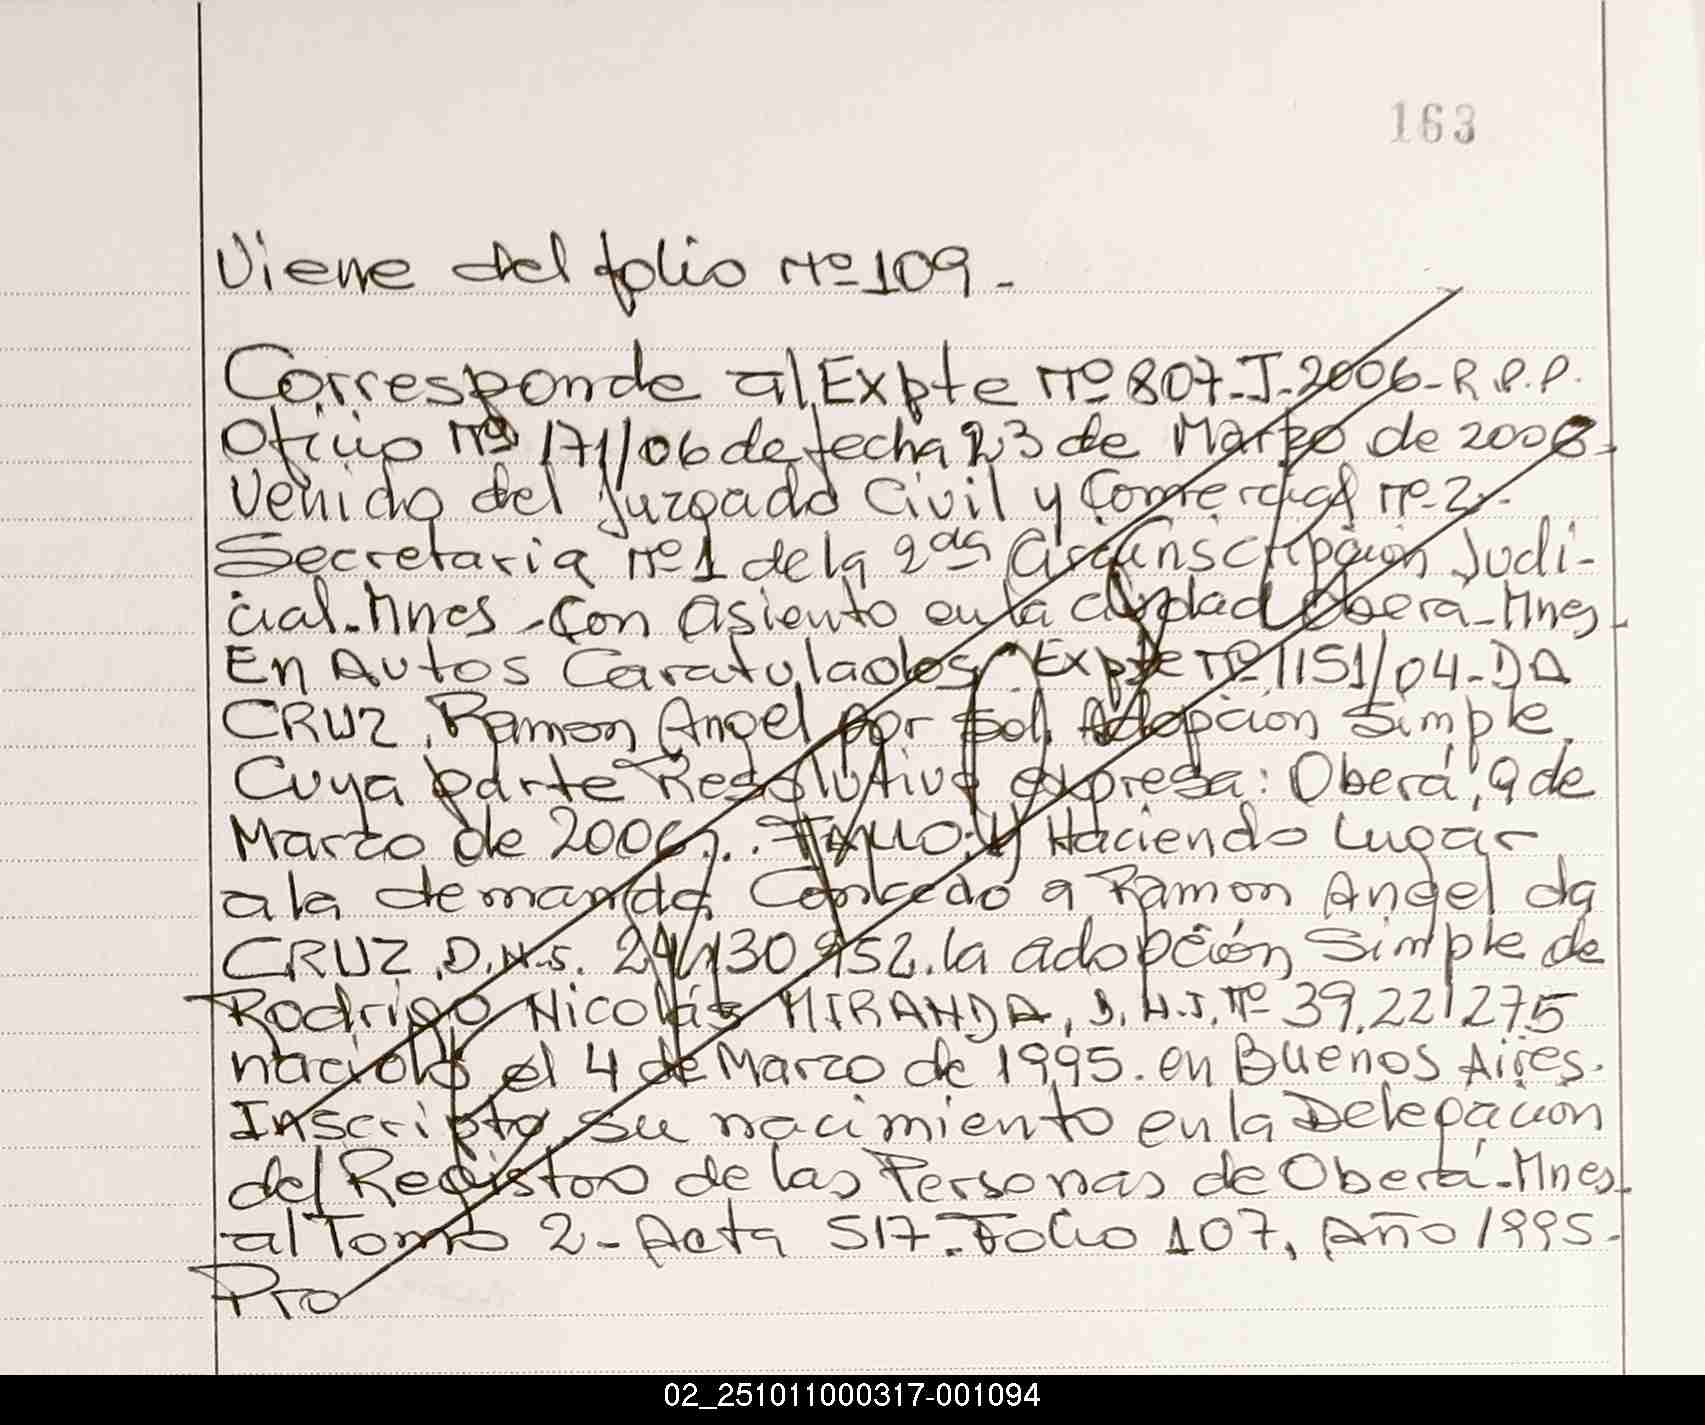 163
Viene del folio Nº 109.-
Corresponde al Expte Nº 807-J-2006-R.P.P.
Oficio Nº 171/06 de fecha 23 de Marzo de 2006.-
Venido del Juzgado Civil y Comercial Nº 2.-
Secretaria Nº 1 de la 2da Circunscripción Judi-
cial-Mnes-Con Asiento en la ciudad Oberá-Mnes.
En Autos Caratulados "Expte Nº 1151/04-DA
CRUZ, Ramon Angel por sol. Adopcion Simple
Cuya parte Resolutiva expresa: Oberá, 9 de
Marzo de 2006... FALLO: 1) Haciendo Lugar
a la demanda Concedo a Ramon Angel da
CRUZ, D.N.I. 24,130 952. la adopción Simple de
Rodrigo Nicolás MIRANDA, D.N.I. Nº 39.221.275
nacido el 4 de Marzo de 1995. en Buenos Aires.
Inscripto su nacimiento en la Delegación
del Registro de las Personas de Oberá-Mnes.
al Tomo 2- Acta 517-Folio 107, Año 1995.-
Pro
02_251011000317-001094